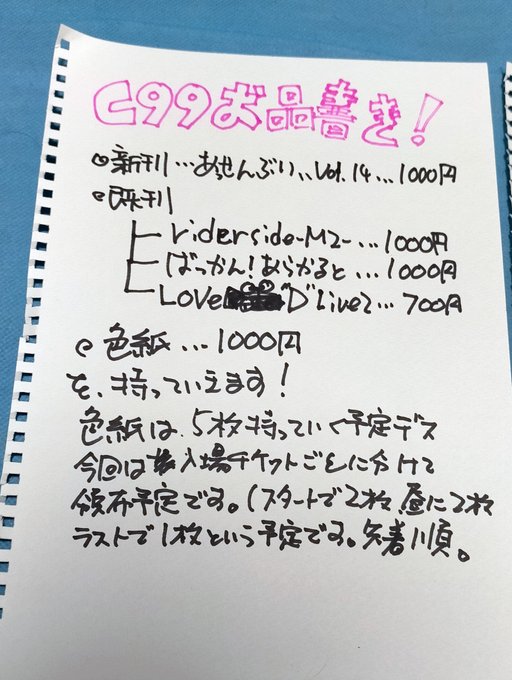 C99お品書き!
新刊…あっせんぶりぃ、Vol.14…1000円
既刊
riderside-M2-…1000円
ばっかん!あらかると…1000円
LOVE "D"Live2…700円
色紙…1000円
を、持っていえます!
色紙は、5枚持っていく予定デス
今回は入場チケットごとに分けて
頒布予定です。(スタートで2枚、昼に2枚
ラストで1枚という予定です。先着順。